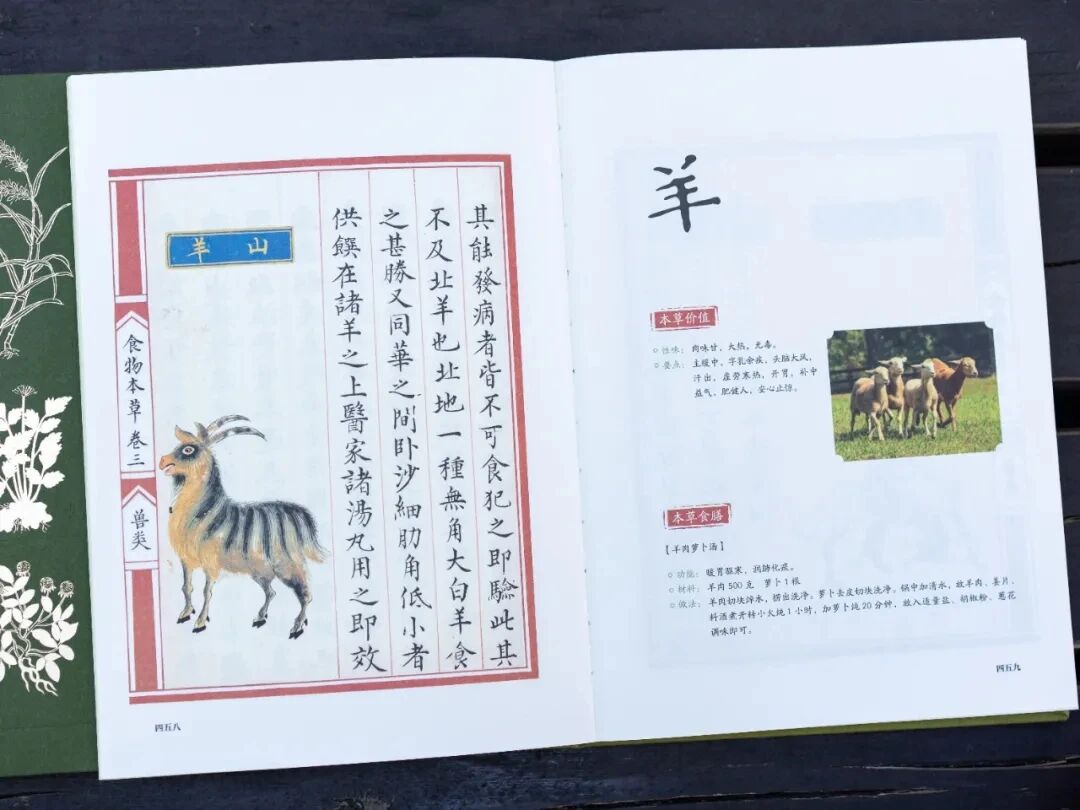 其能發病者皆不可食犯之即驗此其
不及北羊也北地一種無角大白羊食
之甚勝又同華之間卧沙細肋角低小者
供饌在諸羊之上醫家諸湯丸用之即效
羊山
食物本草卷三
兽类
四五八
羊
本草价值
性味：肉味甘，大热，无毒。
要点：主暖中，字乳余疾，头脑大风，
汗出，虚劳寒热，开胃，补中
益气，肥健人，安心止惊。
本草食膳
【羊肉萝卜汤】
功能：暖胃驱寒，润肺化痰。
材料：羊肉500克 萝卜1根
做法：羊肉切块焯水，捞出洗净。萝卜去皮切块洗净。锅中加清水，放羊肉、姜片、
料酒煮开转小火炖1小时，加萝卜炖20分钟，放入适量盐、胡椒粉、葱花
调味即可。
四五九